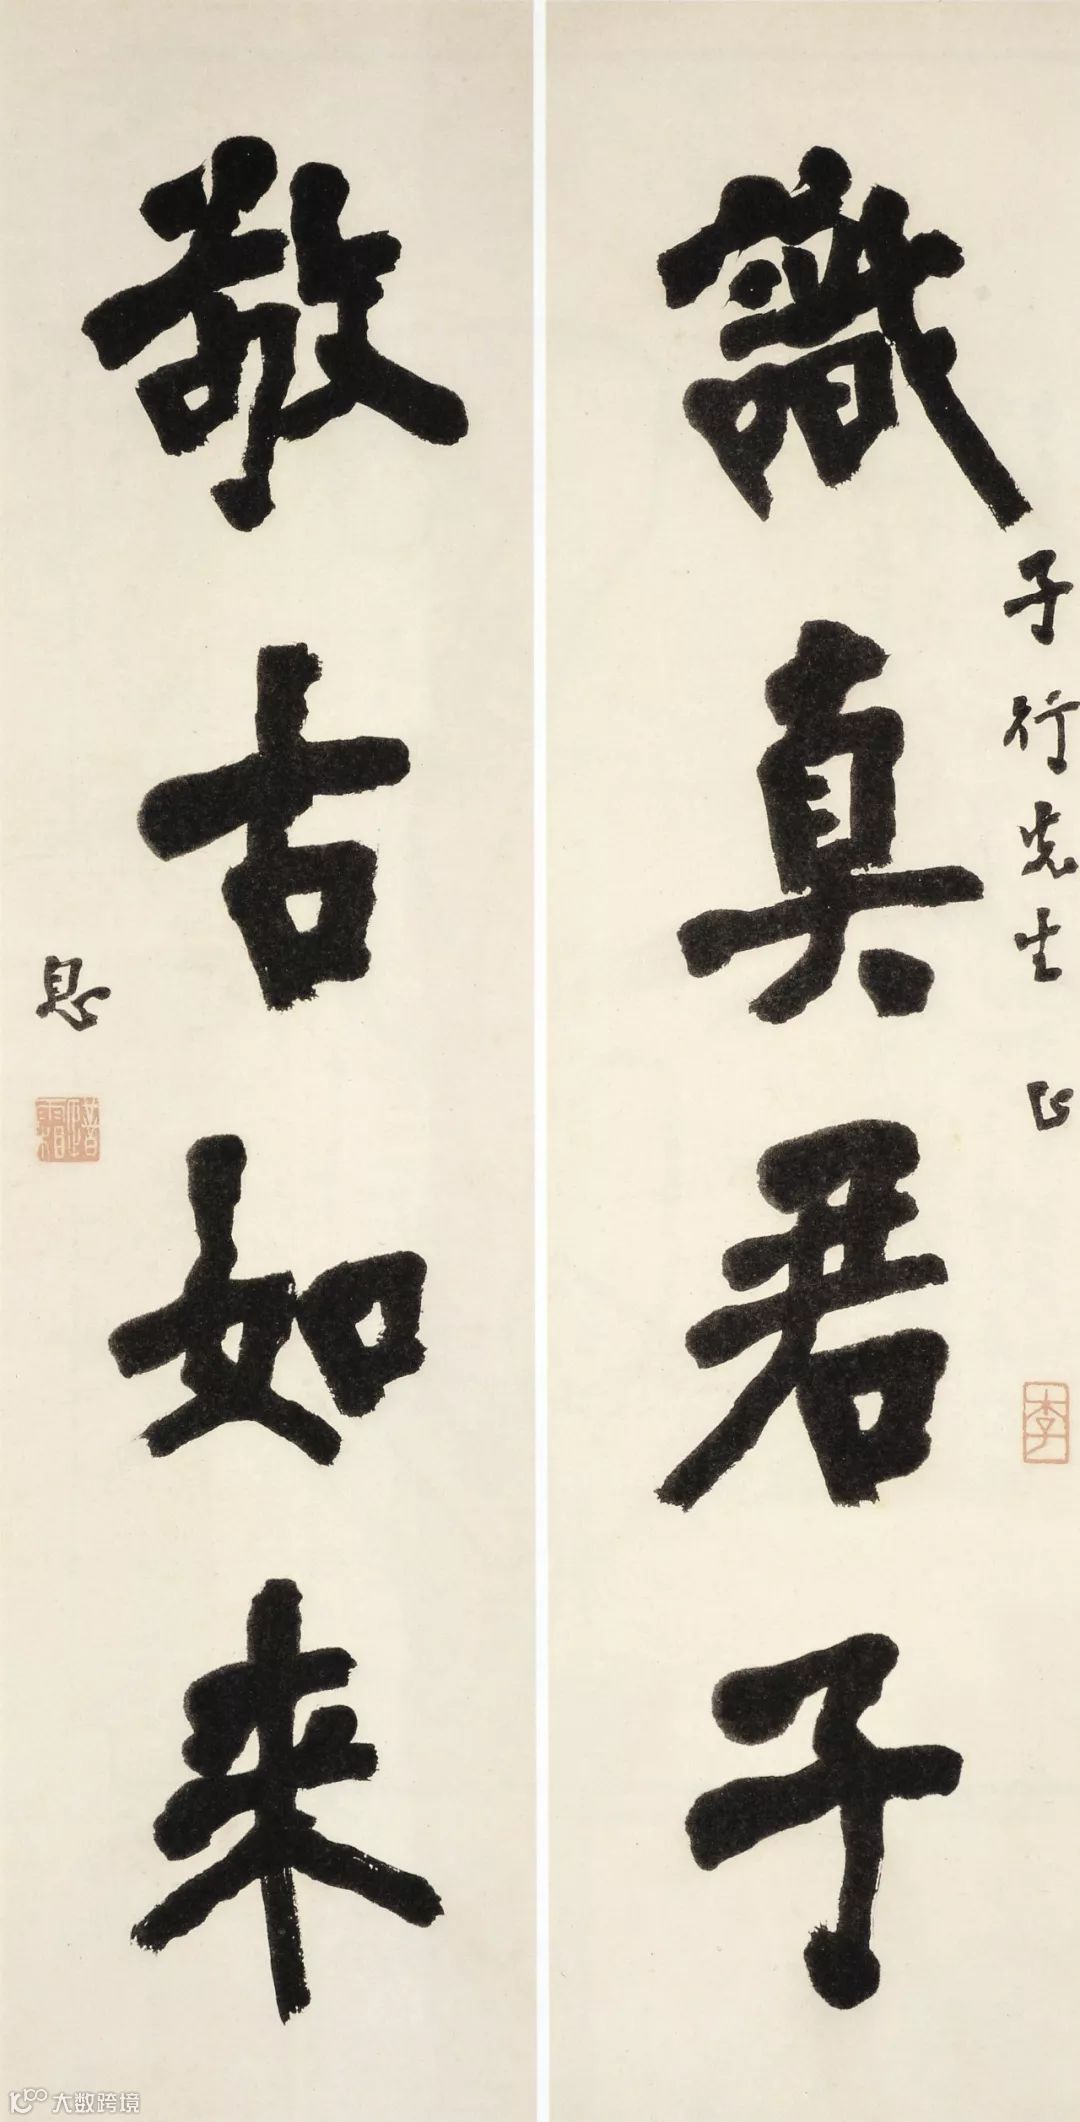 識真君子
子行先生正
李
敬古如来
息
大数跨境